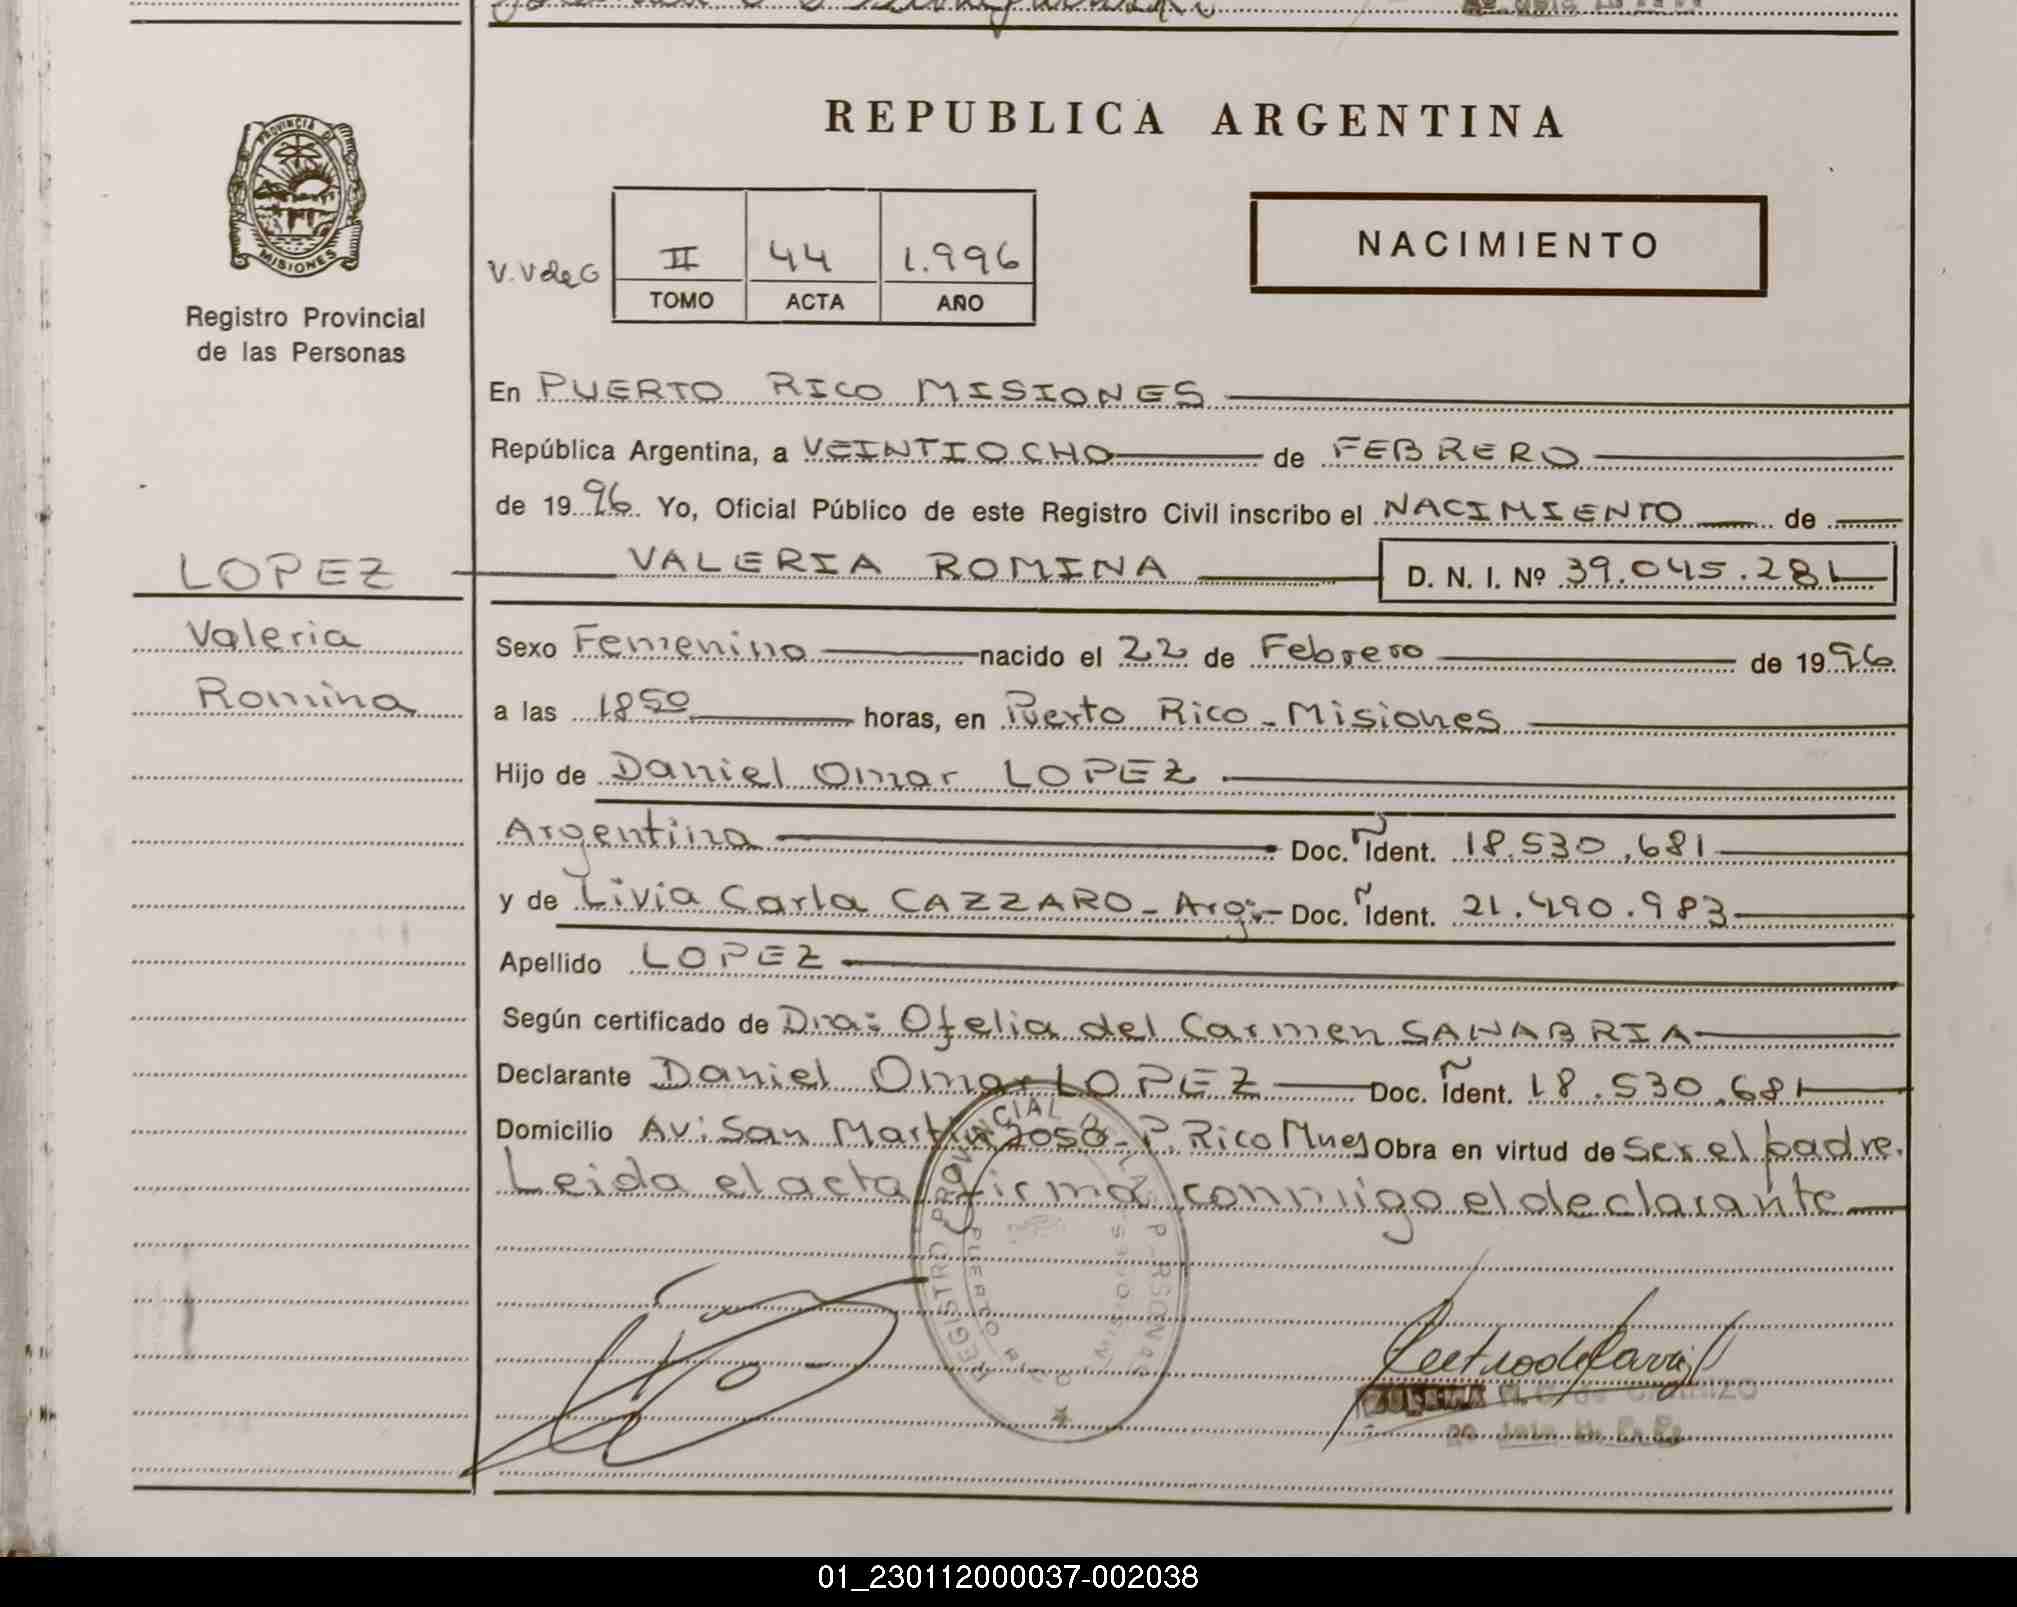 REPUBLICA ARGENTINA
PROVINCIA D
MISIONES
Registro Provincial
de las Personas
V.VdeG
II 44 1.996
TOMO ACTA AÑO
NACIMIENTO
En PUERTO RICO MISIONES
República Argentina, a VEINTIOCHO de FEBRERO
de 1996 Yo, Oficial Público de este Registro Civil inscribo el NACIMIENTO de
LOPEZ VALERIA ROMINA D. N. I. Nº 39.045.281
Valeria
Romina
Sexo Femenino nacido el 22 de Febrero de 1996
a las 1850 horas, en Puerto Rico - Misiones
Hijo de Daniel Omar LOPEZ
Argentina Doc. Ident. 18.530.681
y de Livia Carla CAZZARO - Arg:- Doc. Ident. 21.490.983
Apellido LOPEZ
Según certificado de Dra: Ofelia del Carmen SANABRIA
Declarante Daniel Omar LOPEZ Doc. Ident. 18.530.681
Domicilio Av: San Martin 2058 - P. Rico Mnes Obra en virtud de ser el padre.
Leida el acta firma conmigo el declarante
REGISTRO PROVINCIAL PERSONAS
PUERTO RICO MISIONES
01_230112000037-002038